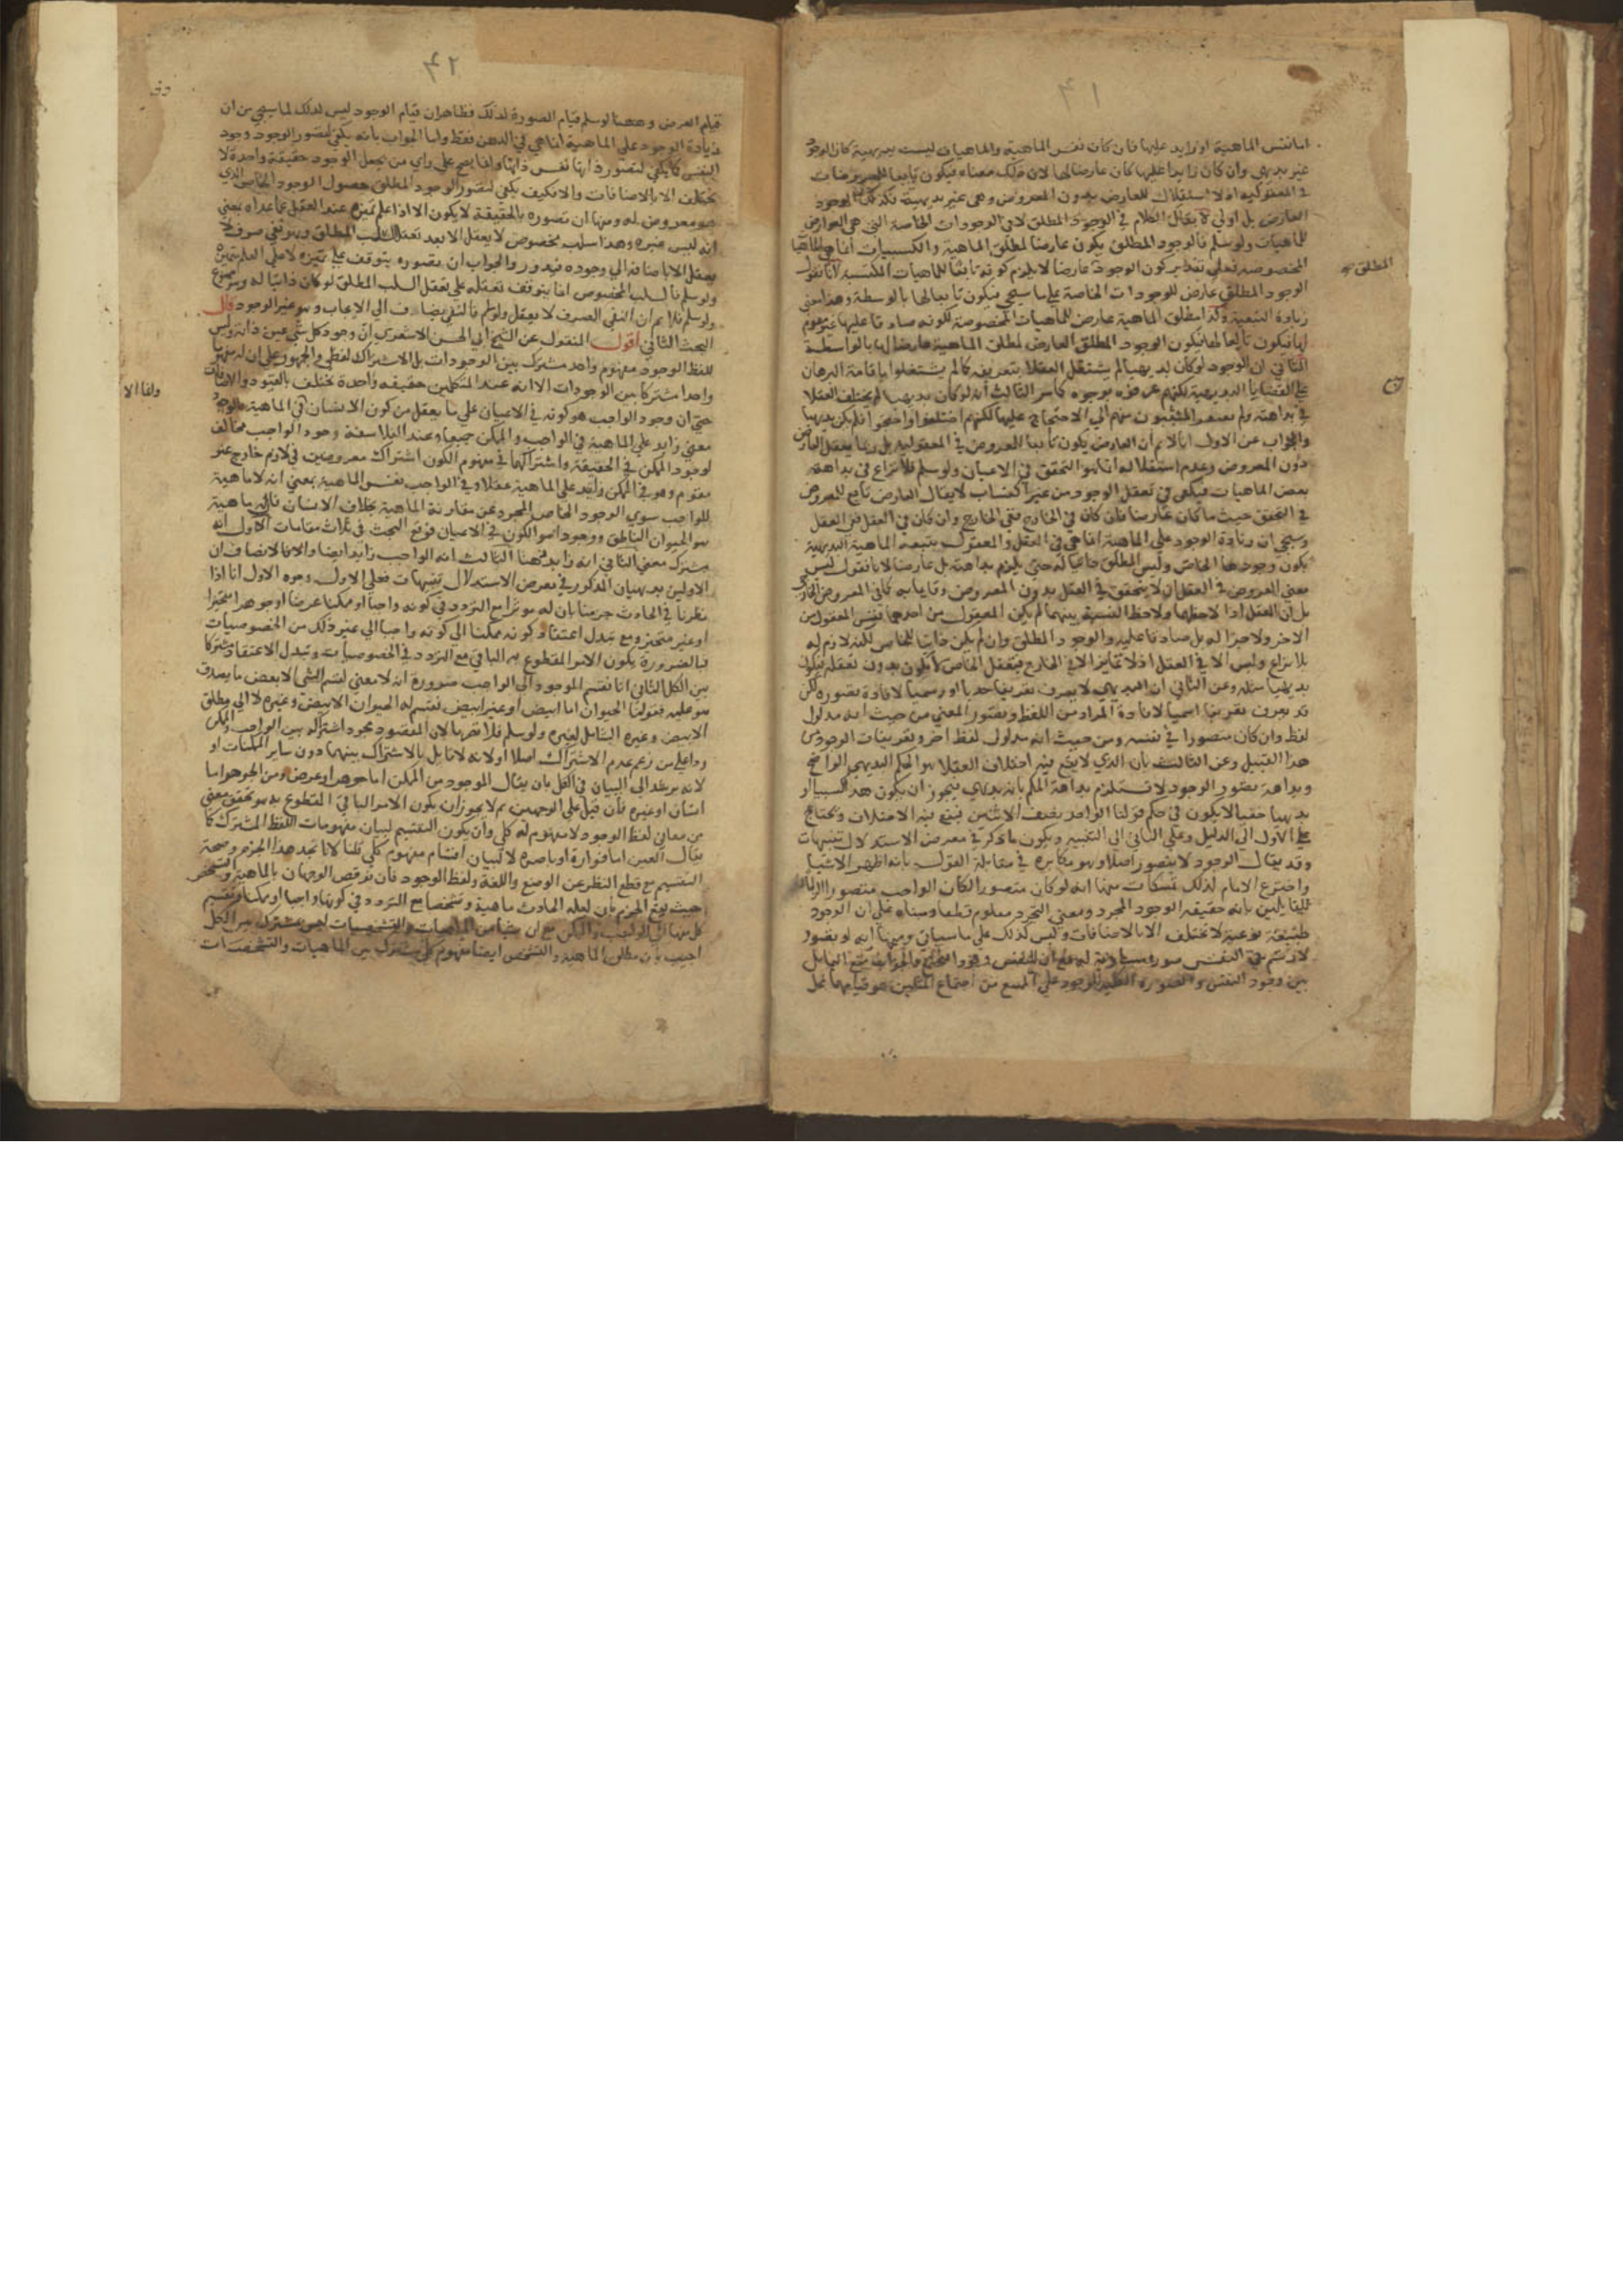 ٤١
اما نفس الماهية او زايد عليها فان كان نفس الماهية والماهيات ليست بديهية كان الوجود
غير بديهي وان كان زايدا عليها كان عارضا لها لان ذلك معناه فيكون تابعا للمعروضات
في المعقولية اذ لا استقلال للعارض بدون المعروض وهي غير بديهية فكذلك الوجود
العارض بل اولى لا يقال الكلام في الوجود المطلق لا في الوجودات الخاصة التي هي العوارض
للماهيات ولو سلم فالوجود المطلق يكون عارضا لمطلق الماهية والكسبيات انما هي الماهيات
المخصوصة فعلى تقدير كون الوجود عارضا لا يلزم كونه تابعا للماهيات المكتسبة لانا نقول
المطلق
الوجود المطلق عارض للوجودات الخاصة على ما سيجي فيكون تابعا لها بالواسطة وهذا معنى
زيادة التبعية وكذا مطلق الماهية عارض للماهيات المخصوصة لكونه صادقا عليها غير مقوم
لها فيكون تابعا لها فيكون الوجود المطلق العارض لمطلق الماهية عارضا لها بالواسطة
الثاني ان الوجود لو كان بديهيا لم يشتغل العقلا بتعريفه كما لم يشتغلوا باقامة البرهان
على القضايا البديهية لكنهم عرفوه بوجوه كما مر الثالث انه لو كان بديهيا لم يختلف العقلا
في بداهته ولم يفتقر المثبتون منهم الى الاحتجاج عليها لكنهم اختلفوا واحتجوا فلم يكن بديهيا
والجواب عن الاول انا لا نم ان العارض يكون تابعا للمعروض في المعقولية بل ربما يعقل العارض
دون المعروض وعدم استقلاله انما هو التحقق في الاعيان ولو سلم فلا نزاع في بداهة
بعض الماهيات فيكفي في تعقل الوجود من غير اكتساب لا يقال العارض تابع للمعروض
في التحقق حيث ما كان عارضا فان كان في الخارج ففي الخارج وان كان في العقل ففي العقل
وسيجي ان زيادة الوجود على الماهية انما هي في العقل والمعقول بتبعية الماهية البديهية
يكون وجودها الخاص وليس المطلق ذاتيا له حتى يلزم بداهته بل عارضا لانا نقول ليس
معنى العروض في العقل ان لا يتحقق في العقل بدون المعروض وقايما به كما في العروض الخارجي
بل ان العقل اذا لاحظهما ولاحظ النسبة بينهما لم يكن المعقول من احدهما نفس المعقول من
الاخر ولا جزا له بل صادقا عليه والوجود المطلق وان لم يكن ذاتيا للخاص لكنه لازم له
بلا نزاع وليس الا في العقل اذ لا تمايز الا في الخارج فتعقل الخاص لا يكون بدون تعقله فيكون
بديهيا مثله وعن الثاني ان البديهي لا يعرف تعريفا حديا او رسميا لافادة تصوره لكن
قد يعرف تعريفا اسميا لافادة المراد من اللفظ وتصور المعنى من حيث انه مدلول
لفظ وان كان متصورا في نفسه ومن حيث انه مدلول لفظ اخر وتعريفات الوجود من
هذا القبيل وعن الثالث بان الذي لا يقع فيه اختلاف العقلا هو الحكم البديهي الواضح
وبداهة تصور الوجود لا تستلزم بداهة الحكم بانه بديهي فيجوز ان يكون هذا كسبيا او
بديهيا خفيا لا يكون في حكم قولنا الواحد نصف الاثنين فيقع فيه الاختلاف ويحتاج
على الاول الى الدليل وعلى الثاني الى التنبيه ويكون ما ذكر في معرض الاستدلال تنبيهات
وقد يقال الوجود لا يتصور اصلا وهو مكابرة في مقابلة القول بانه اظهر الاشيا
واخترع الامام لذلك تمسكات منها انه لو كان متصورا لكان الواجب متصورا الزاما
للقايلين بانه حقيقة الوجود المجرد ومعنى التجرد معلوم قطعا ومبناه على ان الوجود
طبيعة نوعية لا تختلف الا بالاضافات وليس كذلك على ما سياتي ومنها انه لو تصور
لارتسم في النفس صورة مساوية له مع ان للنفس وجودا فيجتمع والجواب منع التماثل
بين وجود النفس والصورة الكلية للوجود على ان الممتنع من اجتماع المثلين هو قيامهما بمحل
٤٢
قيام العرض وههنا لو سلم قيام الصورة لذلك فظاهر ان قيام الوجود ليس لذلك لما سيجي من ان
زيادة الوجود على الماهية انما هي في الذهن فقط واما الجواب بانه يكفي لتصور الوجود وجود
النفس كما يكفي لتصور ذاتها نفس ذاتها فانما يصح على راي من يجعل الوجود حقيقة واحدة لا
تختلف الا بالاضافات والا فكيف يكفي لتصور الوجود المطلق حصول الوجود الخاص الذي
هو معروض له ومنها ان تصوره بالحقيقة لا يكون الا اذا علم تميزه عند العقل عما عداه بمعنى
انه ليس غيره وهذا سلب مخصوص لا يعقل الا بعد تعقل السلب المطلق وهو نفي صرف لا
يعقل الا بالاضافة الى وجوده فيدور والجواب ان تصوره يتوقف على تميزه لا على العلم بتميزه
ولو سلم فالسلب المخصوص انما يتوقف تعقله على تعقل السلب المطلق لو كان ذاتيا له وهو ممنوع
ولو سلم فلا نم ان النفي الصرف لا يعقل ولو سلم فالنفي يضاف الى الايجاب وهو غير الوجود قال
البحث الثاني اقول المنقول عن الشيخ ابي الحسن الاشعري ان وجود كل شي عين ذاته وليس
للفظ الوجود مفهوم واحد مشترك بين الوجودات بل الاشتراك لفظي والجمهور على ان له مفهوما
واحدا مشتركا بين الوجودات الا انه عند المتكلمين حقيقة واحدة تختلف بالقيود والاضافات
حتى ان وجود الواجب هو كونه في الاعيان على ما يعقل من كون الانسان في الماهية
معنى زايد على الماهية في الواجب والممكن جميعا وعند الفلاسفة وجود الواجب مخالف
لوجود الممكن في الحقيقة واشتراكهما في مفهوم الكون اشتراك معروضين في لازم خارج غير
مقوم وهو في الممكن زايد على الماهية عقلا وفي الواجب نفس الماهية بمعنى انه لا ماهية
للواجب سوى الوجود الخاص المجرد عن مقارنة الماهية بخلاف الانسان فان له ماهية
هو الحيوان الناطق ووجودا هو الكون في الاعيان فوقع البحث في ثلاث مقامات الاول انه
مشترك معنى الثاني انه زايد ذهنا الثالث انه الواجب زايد ايضا والانصاف ان
الاولين بديهيان المذكور في معرض الاستدلال تنبيهات فعلى الاول وجوه الاول انا اذا
نظرنا في الحادث جزمنا بان له موثرا مع التردد في كونه واجبا او ممكنا عرضا او جوهرا متحيزا
او غير متحيز ومع تبدل اعتقاد كونه ممكنا الى كونه واجبا الى غير ذلك من الخصوصيات
فبالضرورة يكون الامر المقطوع به الباقي مع التردد في الخصوصيات وتبدل الاعتقاد مشتركا
بين الكل الثاني انا نقسم الموجود الى الواجب ضرورة انه لا معنى لقسم الشي الا بعض ما يصدق
هو عليه فقولنا الحيوان اما ابيض او غير ابيض تقسيم له الحيوان الابيض وغيره لا الى مطلق
الابيض وغيره الشامل لغيره ولو سلم فلا تضرنا لان المقصود مجرد اشتراكه بين الواجب والممكن
ردا على من زعم عدم الاشتراك اصلا او لانه لا قايل بالاشتراك بينهما دون ساير الممكنات او
لانه يرشد الى البيان في الكل بان يقال الموجود من الممكن اما جوهر او عرض ومن الجوهر اما
انسان او غيره فان قيل على الوجهين لم لا يجوز ان يكون الامر الباقي المقطوع به هو تحقق معنى
من معاني لفظ الوجود لا مفهوم له كلي وان يكون التقسيم لبيان مفهومات اللفظ المشترك كما
يقال العين اما فوارة او باصرة لا لبيان اقسام مفهوم كلي قلنا لانا نجد هذا الجزم وصحة
التقسيم مع قطع النظر عن الوضع واللغة ولفظ الوجود فان نوقض الوجهان بالماهية والتشخص
حيث يبقى الجزم بان لعلة الحادث ماهية وتشخصا مع التردد في كونها واجبا او ممكنا وتقسيم
كل منها الى الواجب والممكن مع ان شيئا من الماهيات والتشخصات ليس بمشترك بين الكل
اجيب بان مطلق الماهية والتشخص ايضا مفهوم كلي مشترك بين الماهيات والتشخصات